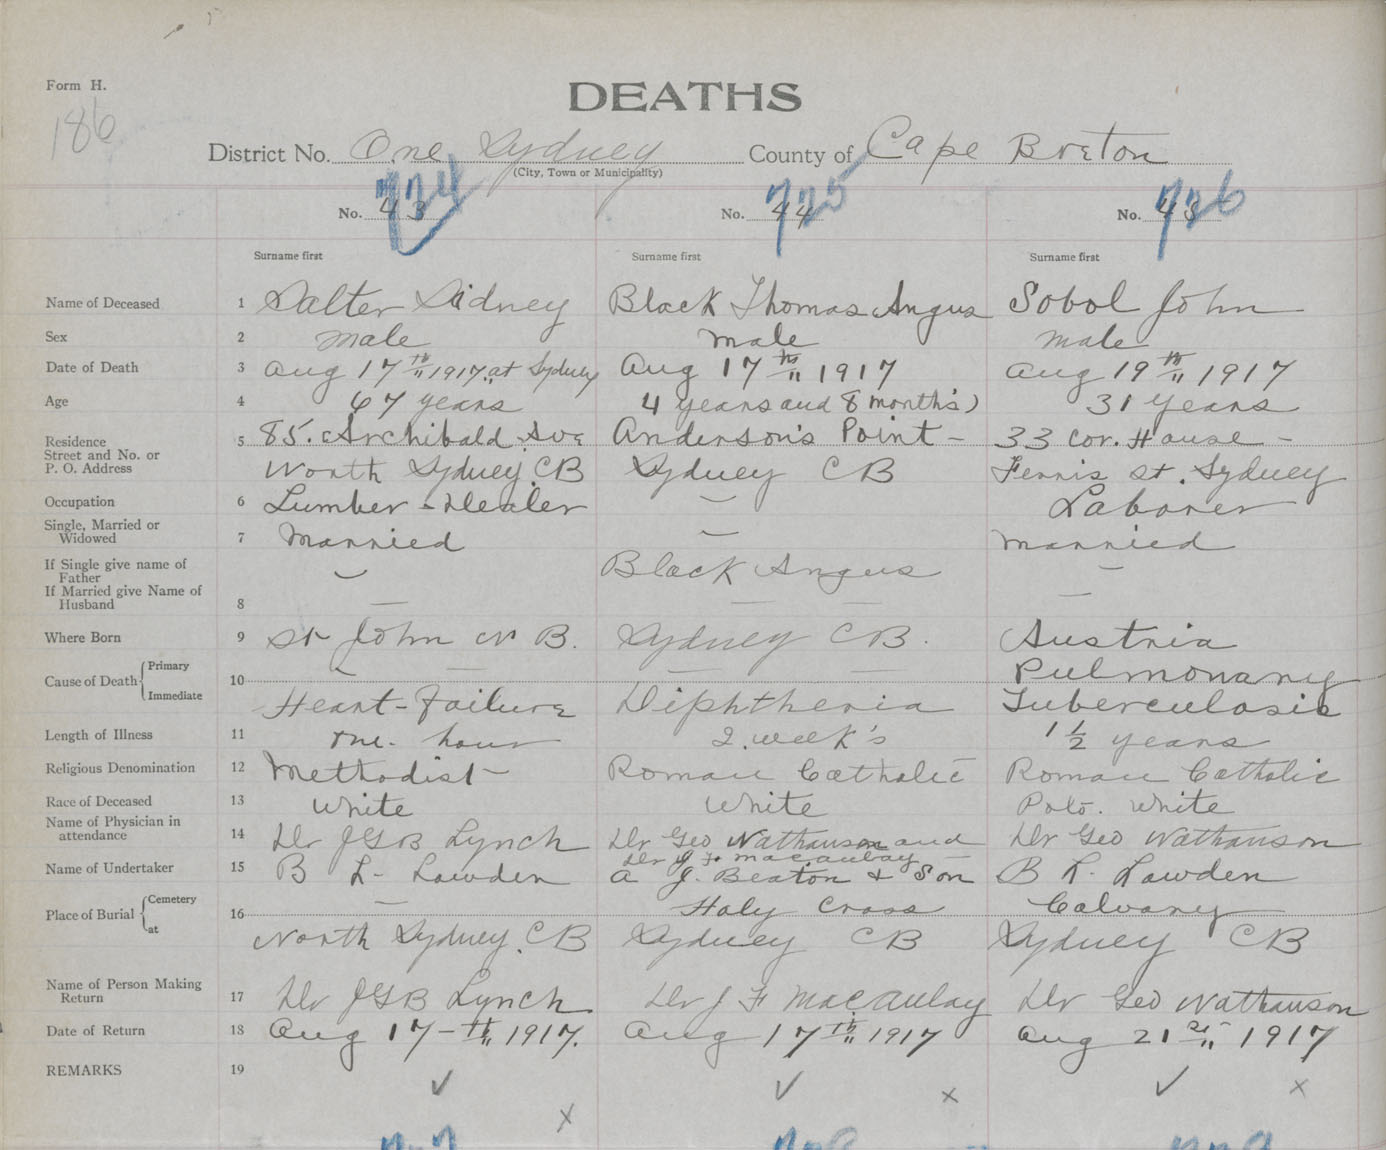 Form H.
186
DEATHS
District No. One Sydney County of Cape Breton
(City, Town or Municipality)
724 725 726
No. 43 No. 44 No. 45
Surname first Surname first Surname first
Name of Deceased 1 Salter Sidney Black Thomas Angus Sobol John
Sex 2 male male male
Date of Death 3 Aug 17th 1917 at Sydney Aug 17th 1917 Aug 19th 1917
Age 4 67 years 4 years and 8 months) 31 years
Residence 5 85. Archibald Ave Anderson's Point - 33 cor. House -
Street and No. or
P. O. Address North Sydney CB Sydney CB Ferris st. Sydney
Occupation 6 Lumber - Dealer — Laborer
Single, Married or
Widowed 7 Married — married
If Single give name of
Father — Black Angus —
If Married give Name of
Husband 8 — — — —
Where Born 9 St John N B. Sydney CB. Austria
Cause of Death { Primary 10 — — — Pulmonary
Immediate Heart-Failure Diphtheria Tuberculosis
Length of Illness 11 one hour 2. week's 1 1/2 years
Religious Denomination 12 Methodist Roman Catholic Roman Catholic
Race of Deceased 13 White White Polo. White
Name of Physician in
attendance 14 Dr JGB Lynch Dr Geo Nathanson and Dr Geo Nathanson
Dr J F Macaulay
Name of Undertaker 15 B L- Lowden A J. Beaton & Son B L. Lowden
Place of Burial { Cemetery 16 — Holy Cross Calvary
at North Sydney. CB Sydney CB Sydney CB
Name of Person Making
Return 17 Dr JGB Lynch Dr J F Macaulay Dr Geo Nathanson
Date of Return 18 Aug 17-th 1917. Aug 17th 1917 Aug 21st 1917
REMARKS 19
✓ ✓ x ✓ x
x